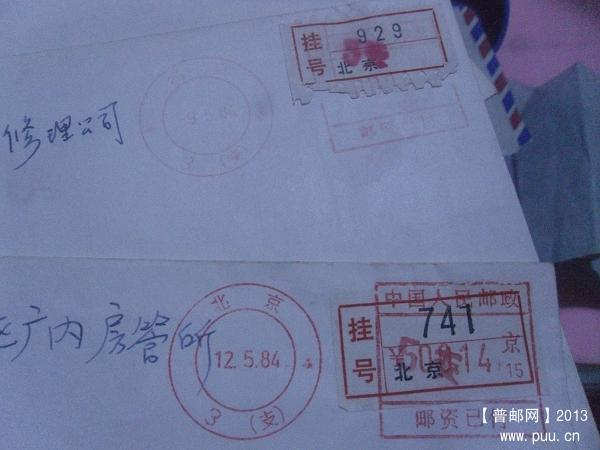 挂号
929
北京
修理公司
3 (支)
中国人民邮政
北京
挂号
741
北京
京
15
14
区广内房管所
12.5.84
3 (支)
邮资已付
【普邮网】2013
www.puu.cn